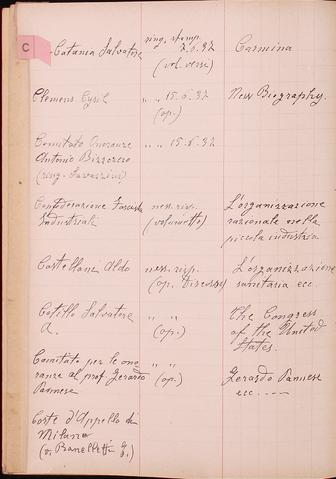 C
Catania Salvatore ring. stamp. Carmina
2.6.32
(vol. versi)
Clemens Cyril " " 15.6.32 New Biography.
(op.)
Comitato Onoranze " " 15.6.32
Antonio Bizzozero
(ring. Savazzini)
Confederazione Fascista ness. risp. L'organizzazione
Industriali (volumetto) razionale nella
piccola industria
Castellani Aldo ness. risp. L'organizzazione
(op. Discorso) sanitaria ecc.
Cotillo Salvatore " " The Congress
A. (op.) of the United
States.
Comitato per le ono " " Gerardo Pannese
ranze al prof. Gerardo (op.) ecc.
Pannese
Corte d'Appello di
Milano
(v. Branelletti G.)